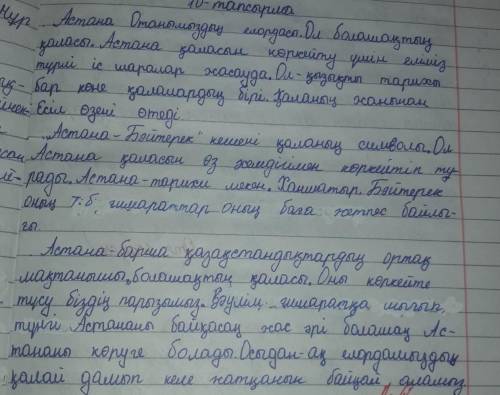 10-тапсырма
Нұр Астана Отанымыздың елордасы. Ол болашақтың
қаласы. Астана қаласын көркейту үшін еліміз
түрлі іс шаралар жасауда. Ол-қызықты тарихы
бар көне қалалардың бірі. Қаланың жанынан
Есіл өзені өтеді.
"Астана-Бәйтерек" кешені қаланың символы. Ол
Астана қаласын өз әсемдігімен көркейтіп тұ-
рады. Астана-тарихи мекен. Ханшатыр. Бәйтерек
оның т.б ғимараттар оның баға жетпес байлы-
ғы.
Астана-барша қазақстандықтардың ортақ
мақтанышы, болашақтың қаласы. Оны көркейте
түсу біздің парызымыз. Зәулім ғимаратқа шығып,
түнгі Астананы байқасаң жас әрі болашақ Ас-
тананы көруге болады. Осыдан-ақ елордамыздың
қалай дамып келе жатқанын байқай аламыз